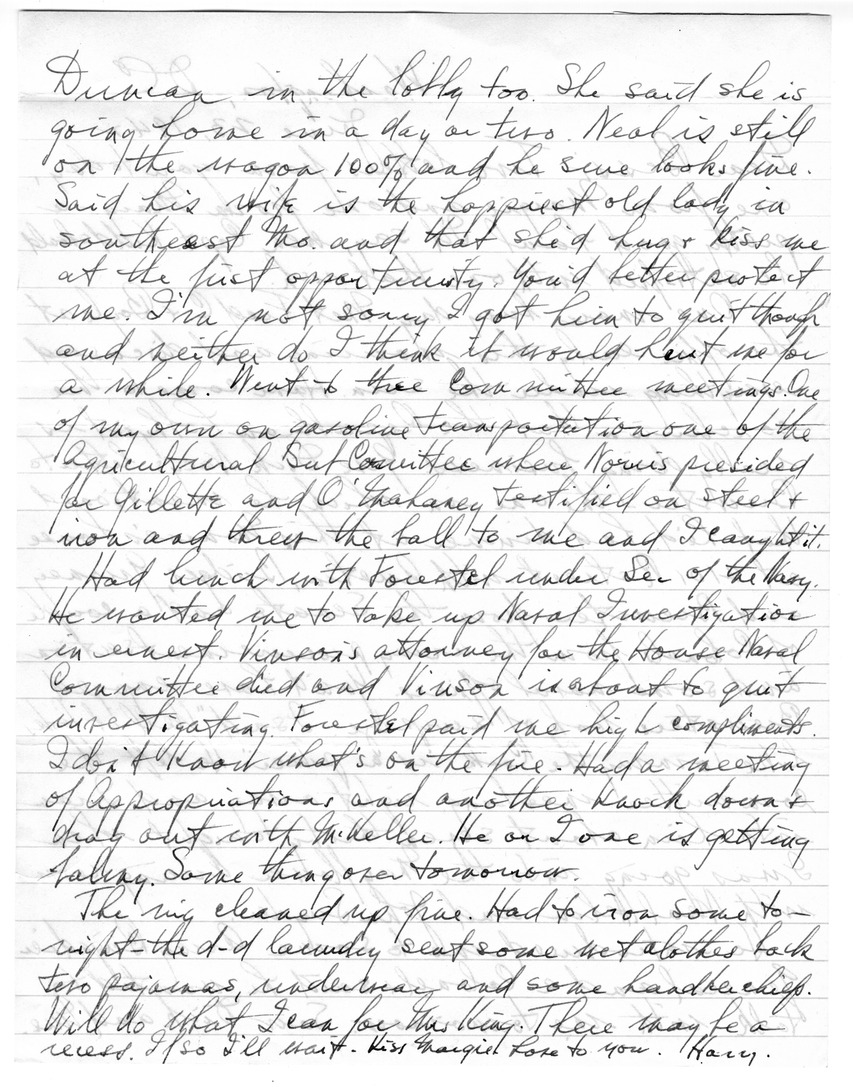 Duncan in the lobby too. She said she is
going home in a day or two. Neal is still
on the wagon 100% and he sure looks fine.
Said his wife is the happiest old lady in
southeast Mo. and that she'd hug & kiss me
at the first opportunity. You'd better protect
me. I'm not sorry I got him to quit though
and neither do I think it would hurt me for
a while. Went to three Committee meetings. One
of my own on gasoline transportation one of the
Agricultural Sub Comittee where Norris presided
for Gillette and O'Mahaney testified on steel &
iron and threw the ball to me and I caught it.
Had lunch with Forestel under Sec of the Navy.
He wanted me to take up Naval Investigation
in ernest. Vinson's attorney for the House Naval
Committee died and Vinson is about to quit
investigating. Forestel paid me high compliments.
I don't know what's on the fire. Had a meeting
of Appropriations and another knock down &
drag out with McKeller. He or I one is getting
balmy. Same thing over tomorrow.
The rug cleaned up fine. Had to iron some to-
night - the d-d laundry sent some wet clothes back
two pajamas, underwear and some handkerchiefs.
Will do what I can for Mrs King. There may be a
recess. If so I'll wait. Kiss Margie. Love to you. Harry.